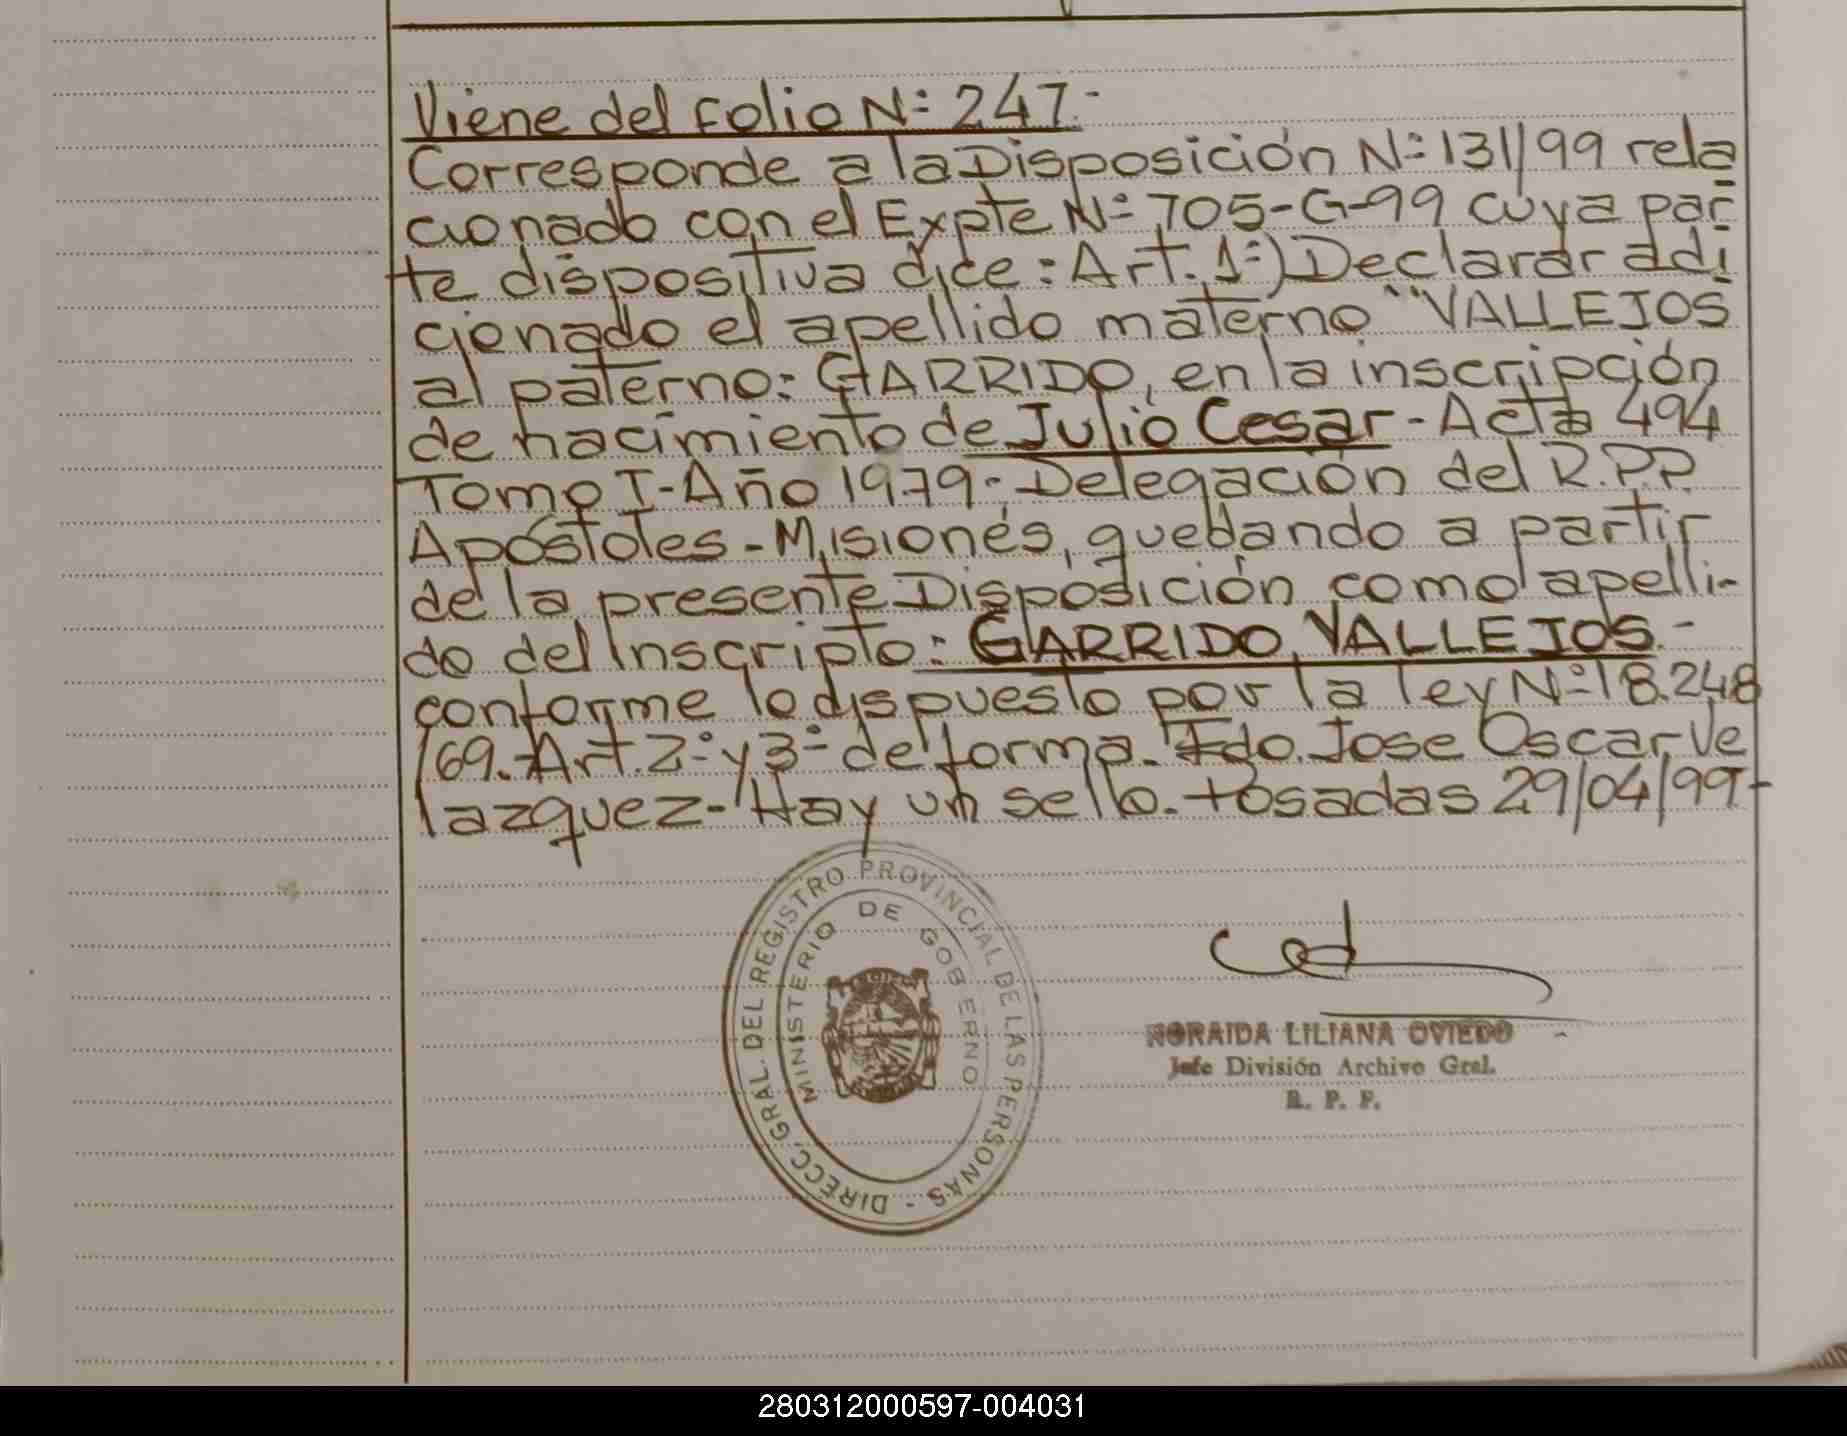 Viene del folio Nº 247.-
Corresponde a la Disposición Nº 131/99 rela
cionado con el Expte Nº 705-G-99 cuya par
te dispositiva dice: Art. 1º) Declarar adi
cionado el apellido materno "VALLEJOS
al paterno: GARRIDO, en la inscripción
de nacimiento de Julio Cesar - Acta 494
Tomo I - Año 1979 - Delegación del R.P.P.
Apóstoles - Misiones, quedando a partir
de la presente Disposición como apelli-
do del Inscripto: GARRIDO VALLEJOS.-
conforme lo dispuesto por la ley Nº 18.248
/69.- Art. 2º y 3º de forma. Fdo. Jose Oscar Ve
lazquez - Hay un sello. Posadas 29/04/99-
DIRECC. GRAL. DEL REGISTRO PROVINCIAL DE LAS PERSONAS -
MINISTERIO DE GOBIERNO
NORAIDA LILIANA OVIEDO
Jefe División Archivo Gral.
R. P. P.
280312000597-004031